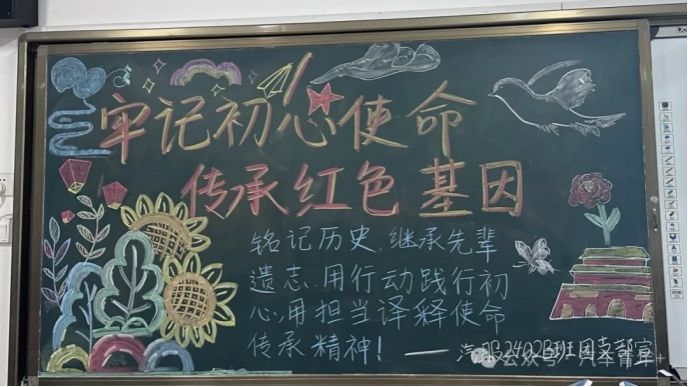 牢记初心使命
传承红色基因
铭记历史,继承先辈
遗志,用行动践行初
心,用担当译释使命
传承精神!——汽服2402B班团支部宣
公众号 · 汽车青年+